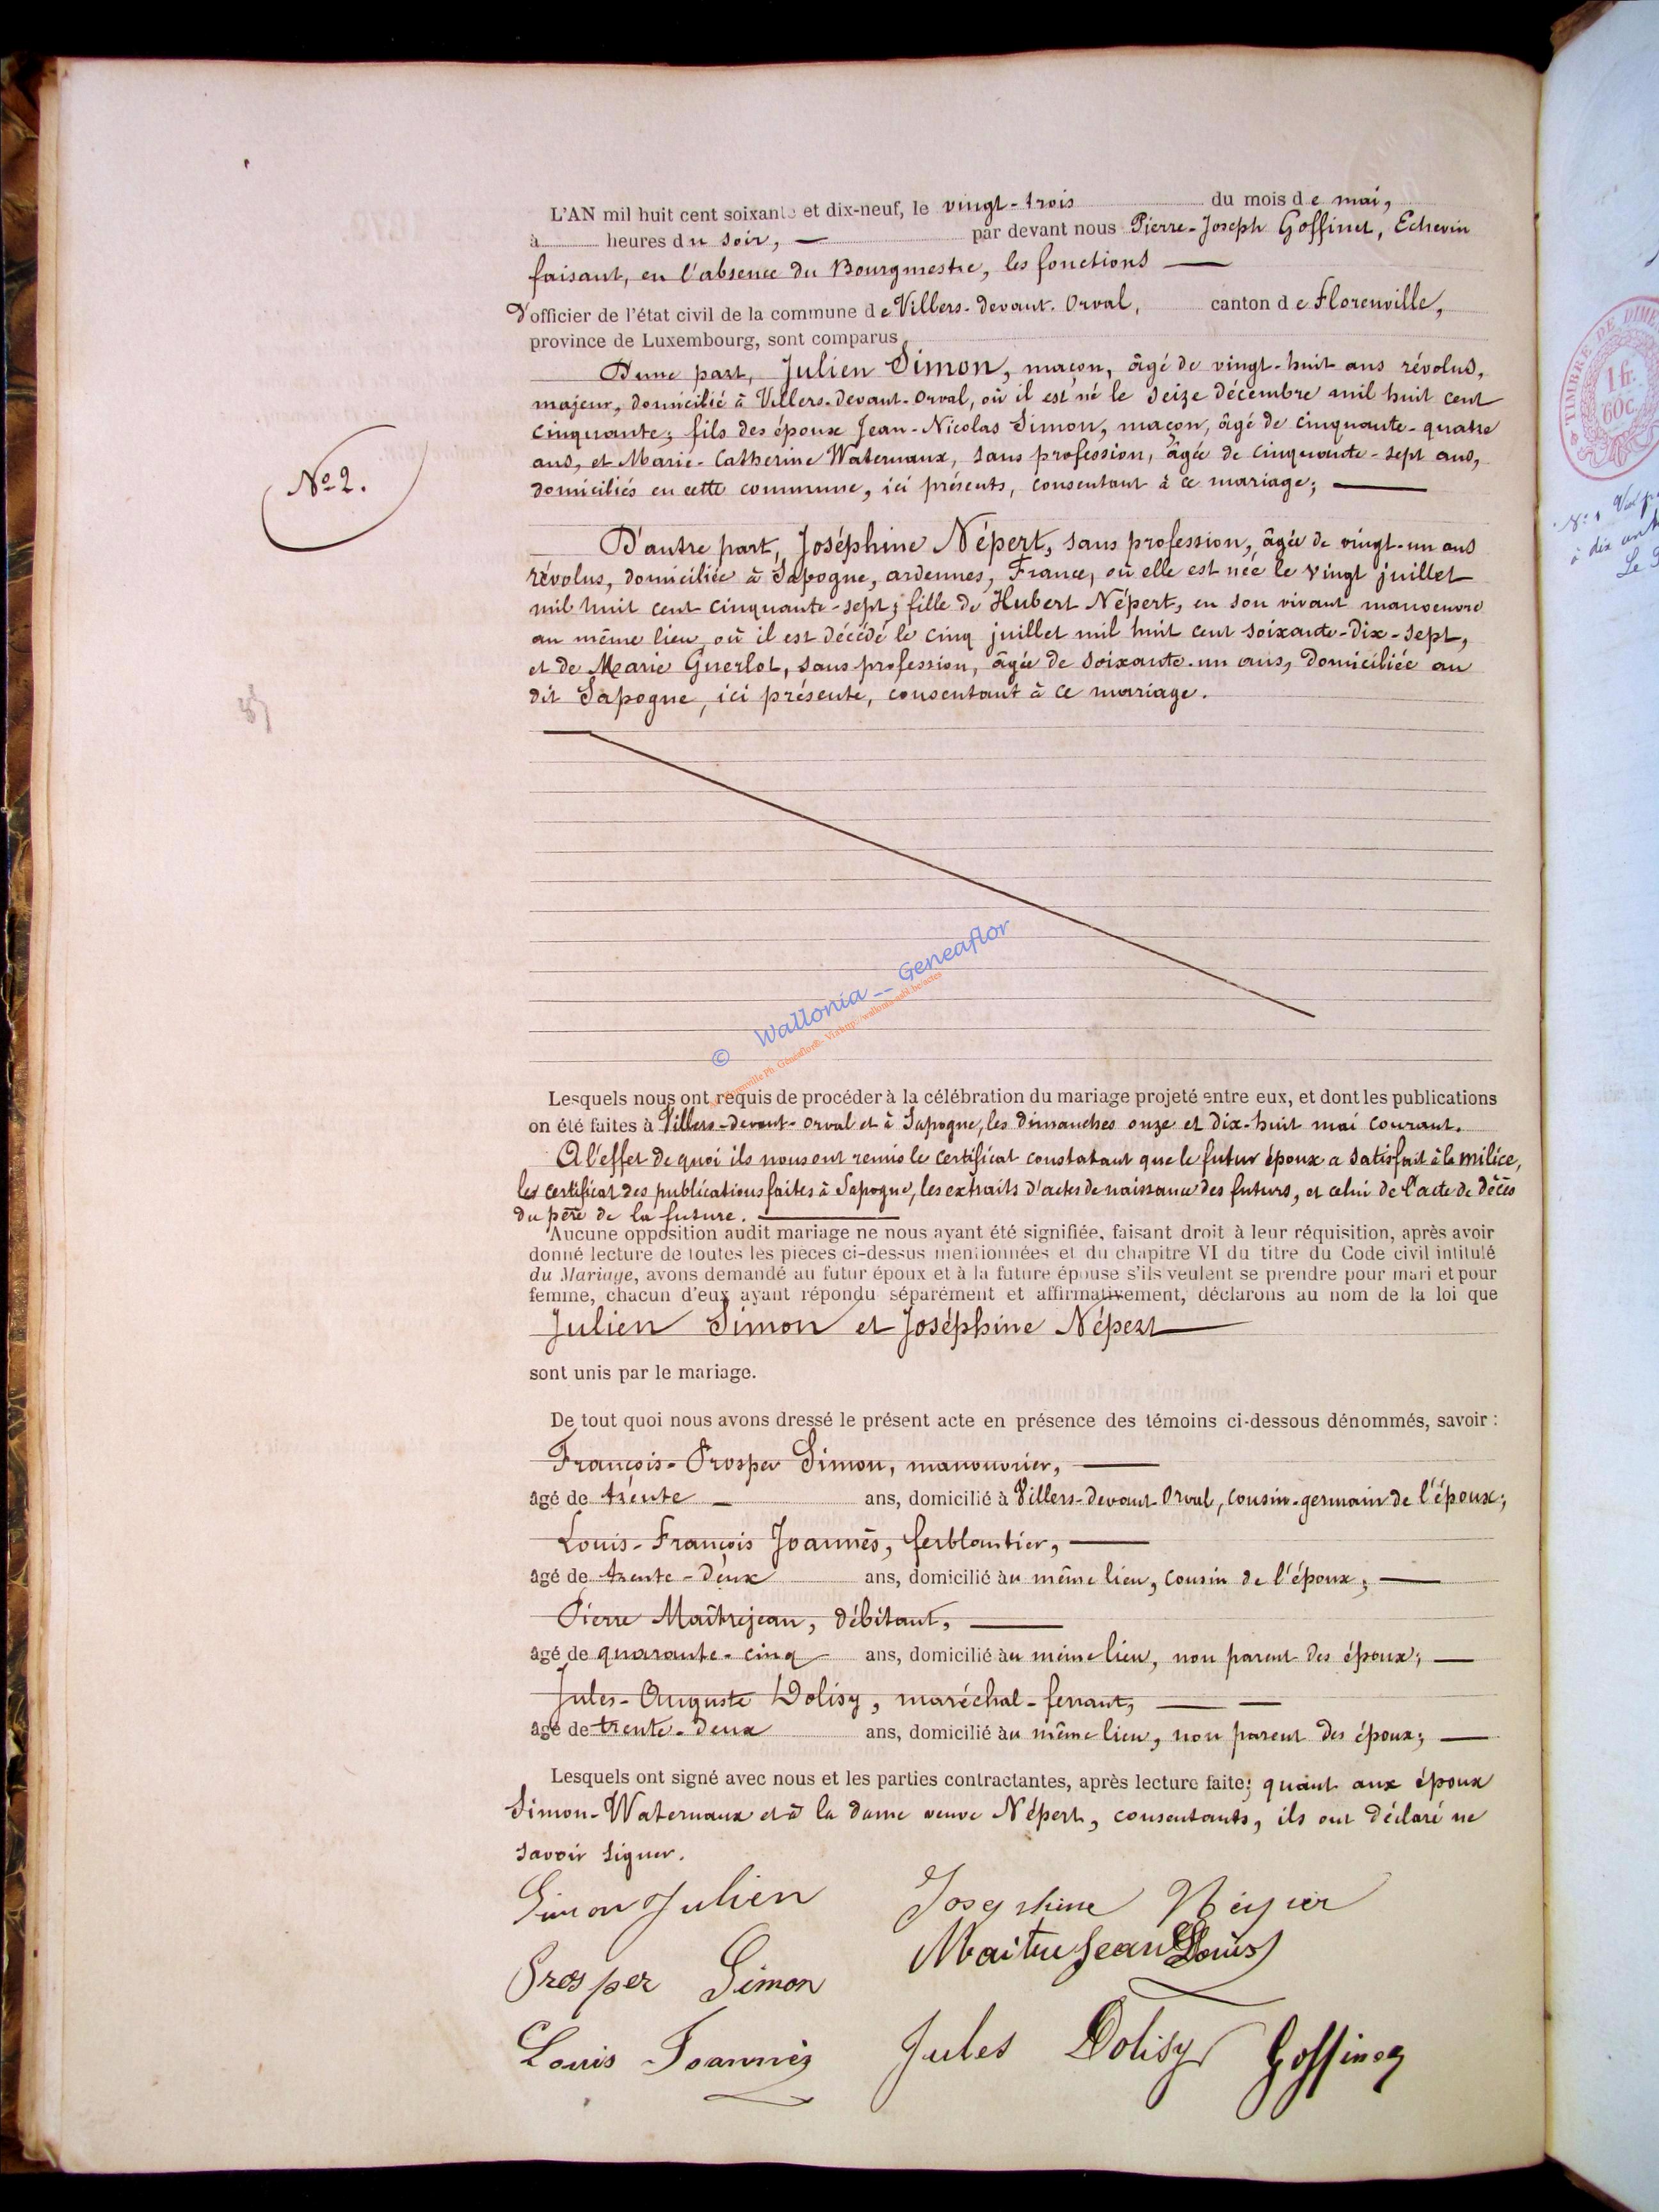 L'AN mil huit cent soixante et dix-neuf, le vingt-trois du mois de mai,
à heures du soir, — par devant nous Pierre-Joseph Goffinet, Echevin
faisant, en l'absence du Bourgmestre, les fonctions —
D'officier de l'état civil de la commune de Villers-devant-Orval, canton de Florenville,
province de Luxembourg, sont comparus
D'une part, Julien Simon, maçon, âgé de vingt-huit ans révolus,
majeur, domicilié à Villers-devant-Orval, où il est né le seize décembre mil huit cent
cinquante; fils des époux Jean-Nicolas Simon, maçon, âgé de cinquante-quatre
ans, et Marie-Catherine Waternaux, sans profession, âgée de cinquante-sept ans,
domiciliés en cette commune, ici présents, consentant à ce mariage; —
N° 2.
D'autre part, Joséphine Népert, sans profession, âgée de vingt-un ans
révolus, domiciliée à Sapogne, ardennes, France, où elle est née le vingt juillet
mil huit cent cinquante-sept; fille de Hubert Népert, en son vivant manoeuvre
au même lieu où il est décédé le cinq juillet mil huit cent soixante-dix-sept,
et de Marie Guerlot, sans profession, âgée de soixante-un ans, domiciliée au
dit Sapogne, ici présente, consentant à ce mariage.
© Wallonia -- Geneaflor
Lesquels nous ont requis de procéder à la célébration du mariage projeté entre eux, et dont les publications
on été faites à Villers-devant-Orval et à Sapogne, les dimanches onze et dix-huit mai courant.
A l'effet de quoi ils nous ont remis le certificat constatant que le futur époux a satisfait à la milice,
les certificat des publications faites à Sapogne, les extraits d'actes de naissance des futurs, et celui de l'acte de décès
du père de la future. —
Aucune opposition audit mariage ne nous ayant été signifiée, faisant droit à leur réquisition, après avoir
donné lecture de toutes les pièces ci-dessus mentionnées et du chapitre VI du titre du Code civil intitulé
du Mariage, avons demandé au futur époux et à la future épouse s'ils veulent se prendre pour mari et pour
femme, chacun d'eux ayant répondu séparément et affirmativement, déclarons au nom de la loi que
Julien Simon et Joséphine Népert
sont unis par le mariage.
De tout quoi nous avons dressé le présent acte en présence des témoins ci-dessous dénommés, savoir :
François-Prosper Simon, manouvrier, —
âgé de trente — ans, domicilié à Villers-devant-Orval, cousin-germain de l'époux;
Louis-François Joannès, ferblantier, —
âgé de trente-deux ans, domicilié au même lieu, cousin de l'époux; —
Pierre Maîtrejean, débitant, —
âgé de quarante-cinq ans, domicilié au même lieu, non parent des époux; —
Jules-Auguste Dolisy, maréchal-ferrant, — —
âgé de trente-deux ans, domicilié au même lieu, non parent des époux; —
Lesquels ont signé avec nous et les parties contractantes, après lecture faite; quant aux époux
Simon-Waternaux et à la dame veuve Népert, consentants, ils ont déclaré ne
savoir signer.
Simon Julien Josephine
Prosper Simon Maitrejean Louis
Louis Joannès Jules Dolisy Goffinet
TIMBRE DE DIME
1 fr.
60c.